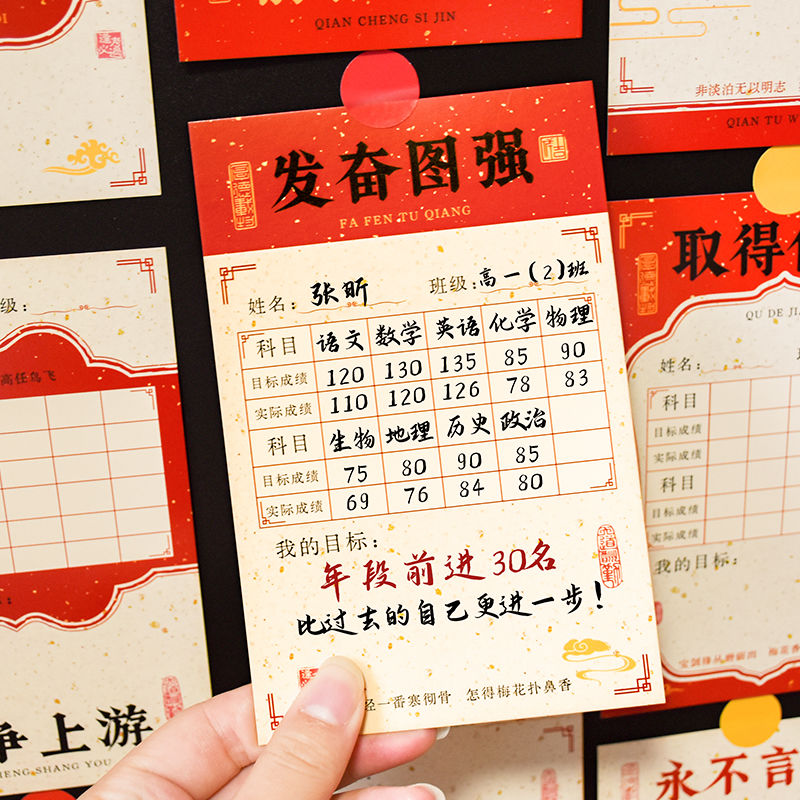 QIAN CHENG SI JIN
非淡泊无以明志
QIAN TU W
发奋图强
FA FEN TU QIANG
姓名: 张昕 班级: 高一(2)班
科目 语文 数学 英语 化学 物理
目标成绩 120 130 135 85 90
实际成绩 110 120 126 78 83
科目 生物 地理 历史 政治
目标成绩 75 80 90 85
实际成绩 69 76 84 80
我的目标:
年段前进30名
比过去的自己更进一步!
一番寒彻骨 怎得梅花扑鼻香
级:
高任鸟飞
争上游
HENG SHANG YOU
取得
QU DE JI
姓名:
科目
目标成绩
实际成绩
科目
目标成绩
实际成绩
我的目标:
宝剑锋从磨砺出 梅花香
永不言